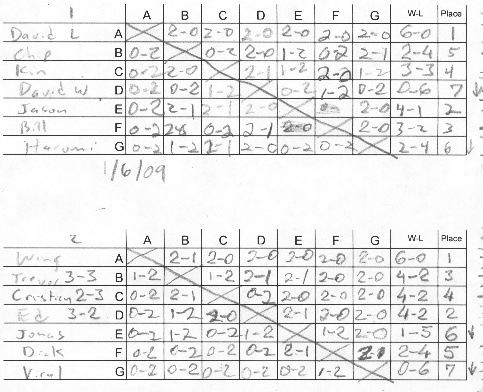 1 A B C D E F G W-L Place
David L A 2-0 2-0 2-0 2-0 2-0 2-0 6-0 1
Chip B 0-2 0-2 2-0 1-2 0-2 2-1 2-4 5
Kin C 0-2 2-0 2-1 1-2 2-0 1-2 3-3 4
David W D 0-2 0-2 1-2 0-2 1-2 0-2 0-6 7
Jason E 0-2 2-1 2-1 2-0 2-0 4-1 2
Bill F 0-2 0-2 2-1 2-0 2-0 3-2 3
Harumi G 0-2 1-2 2-1 2-0 0-2 0-2 2-4 6
1/6/09
2 A B C D E F G W-L Place
Wing A 2-1 2-0 2-0 2-0 2-0 2-0 6-0 1
Trevor 3-3 B 1-2 1-2 2-1 2-1 2-0 2-0 4-2 3
Cristian 2-3 C 0-2 2-1 0-2 2-0 2-0 2-0 4-2 4
Ed 3-2 D 0-2 1-2 2-0 2-1 2-0 2-0 4-2 2
Jonas E 0-2 1-2 0-2 1-2 1-2 2-0 1-5 6
Dick F 0-2 0-2 0-2 0-2 2-1 2-4 5
Viral G 0-2 0-2 0-2 0-2 0-2 1-2 0-6 7